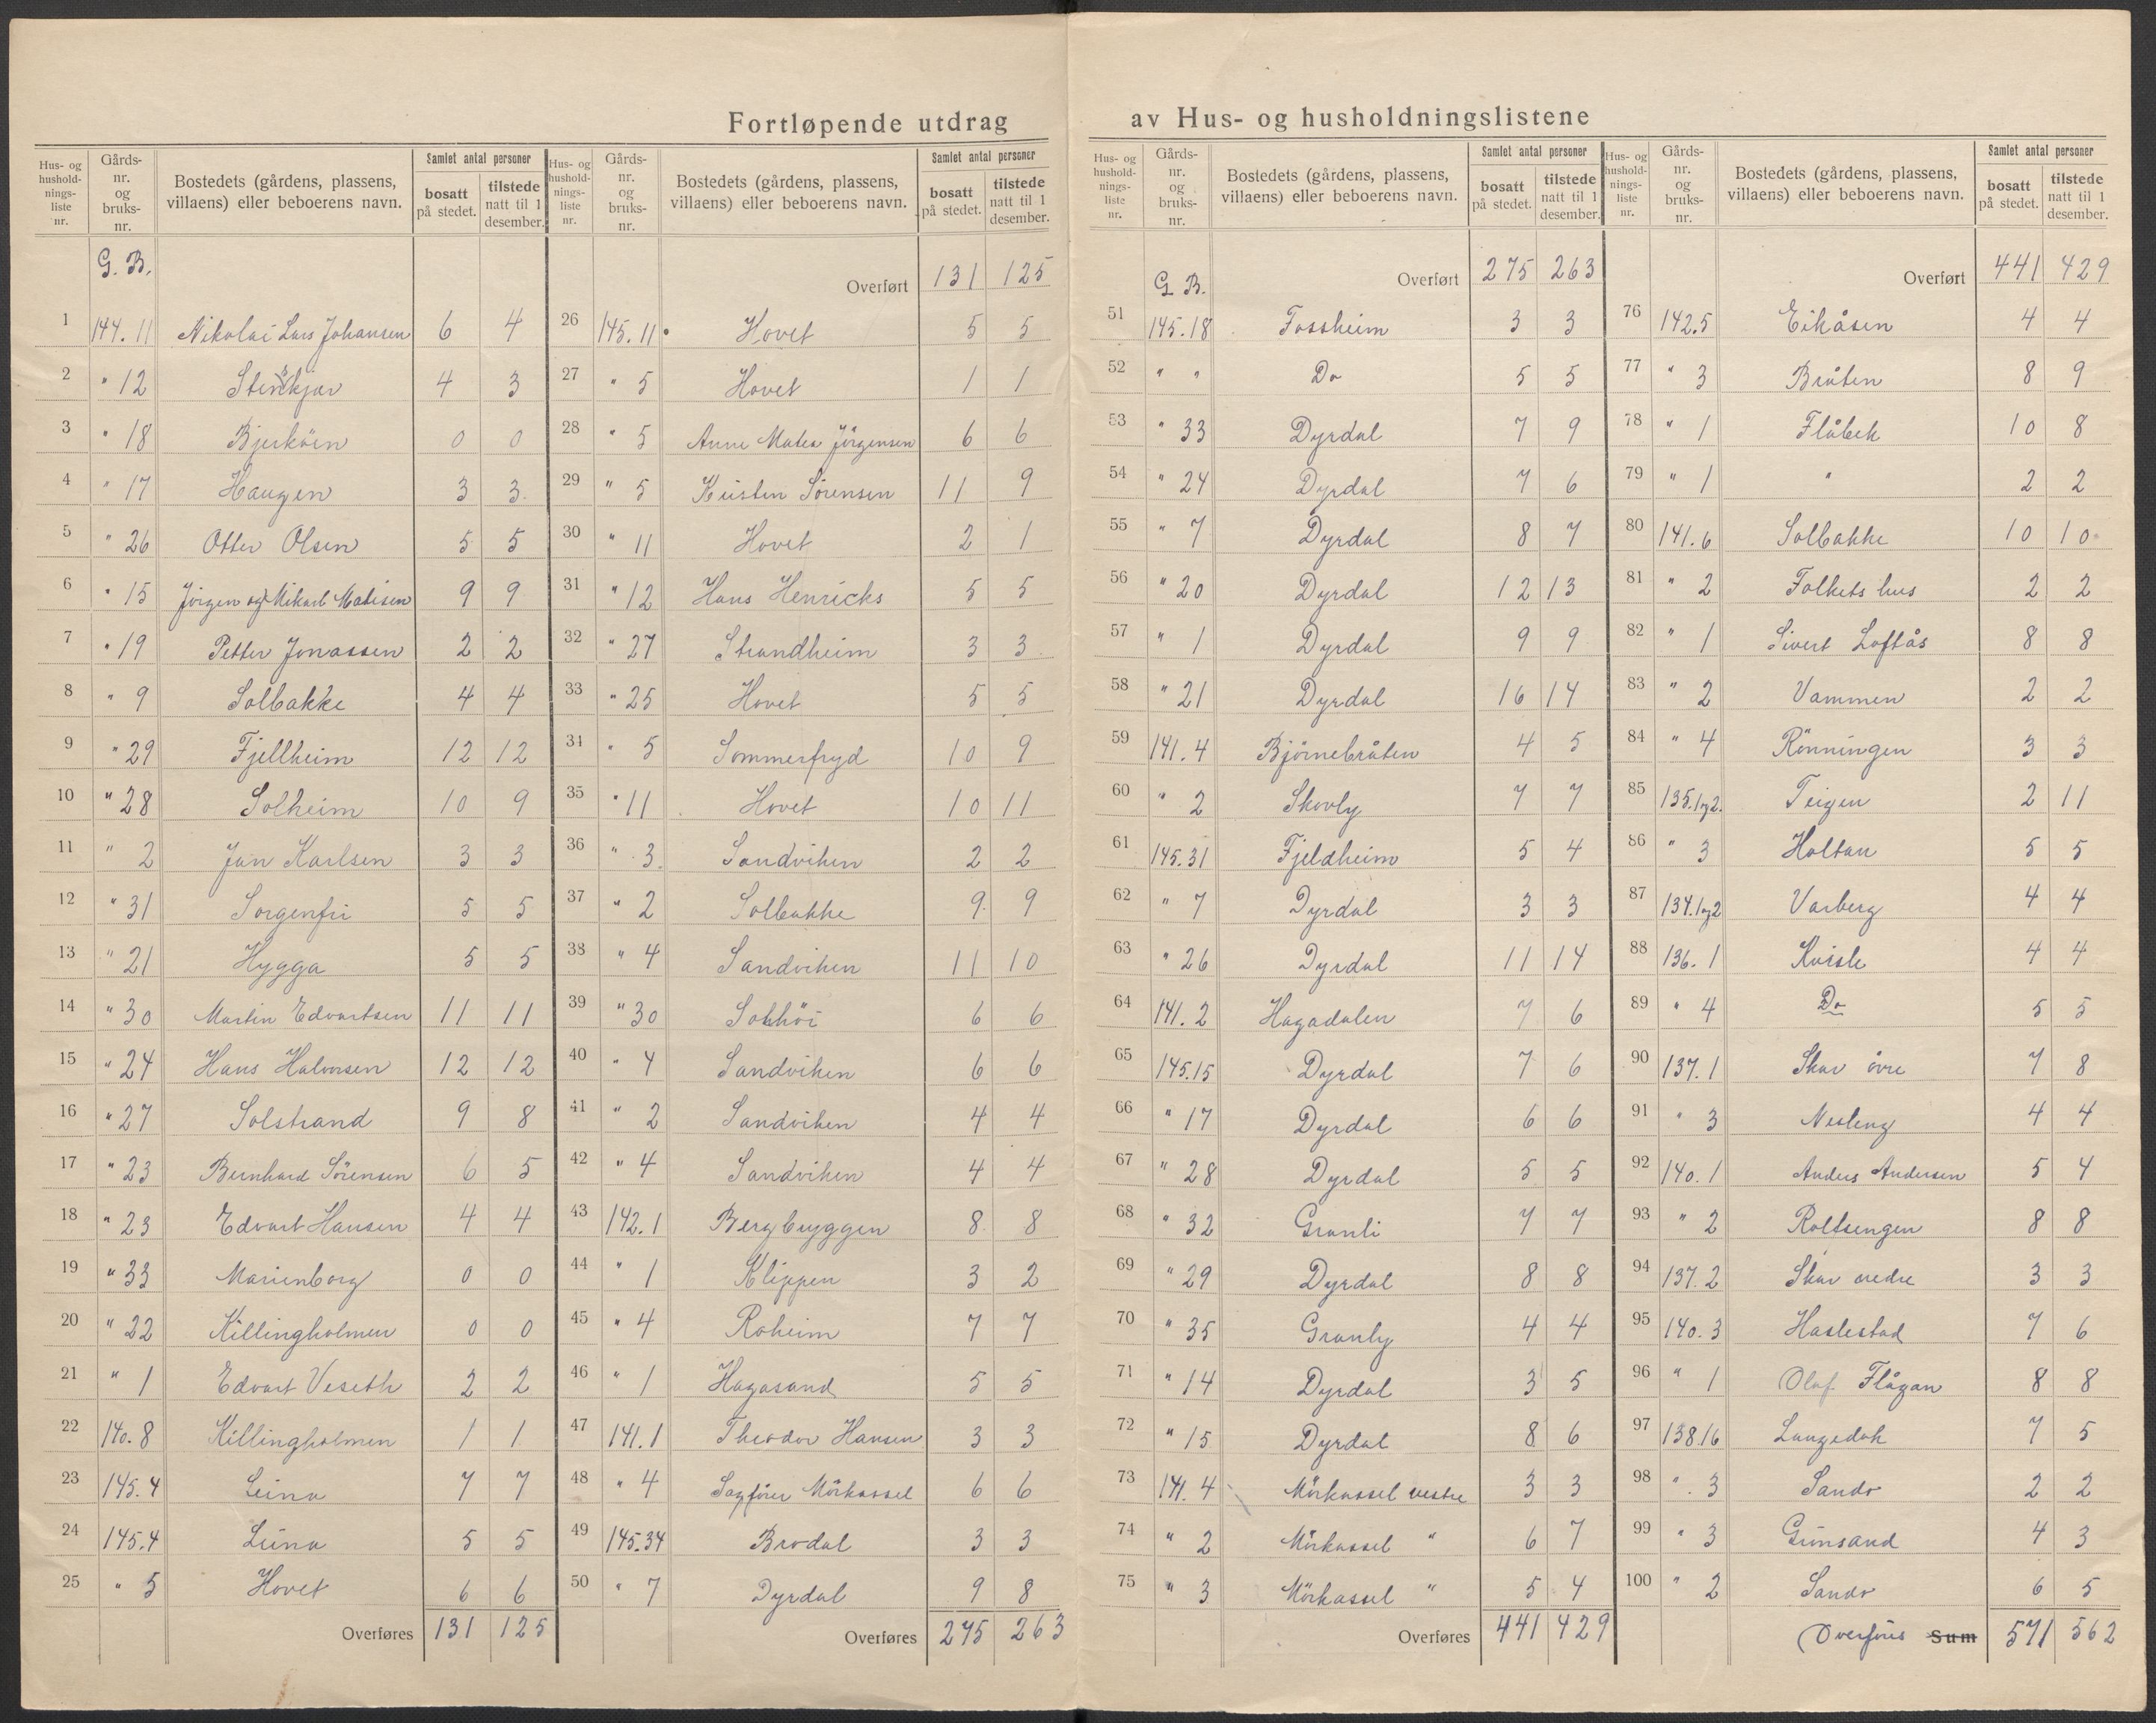 Fortløpende utdrag av Hus- og husholdningslistene
Hus- og hushold-nings-liste nr. Gårds-nr. og bruks-nr. Bostedets (gårdens, plassens, villaens) eller beboerens navn. Samlet antal personer bosatt på stedet. tilstede natt til 1 desember.
G. B.
1 144.11 Nikolai Lars Johansen 6 4
2 " 12 Stenkjær 4 3
3 " 18 Bjerköen 0 0
4 " 17 Haugen 3 3
5 " 26 Otter Olsen 5 5
6 " 15 Jörgen og Mikael Matisen 9 9
7 " 19 Petter Jonassen 2 2
8 " 9 Solbakke 4 4
9 " 29 Fjellheim 12 12
10 " 28 Solheim 10 9
11 " 2 Jan Karlsen 3 3
12 " 31 Sorgenfri 5 5
13 " 21 Hygga 5 5
14 " 30 Martin Edvartsen 11 11
15 " 24 Hans Halvorsen 12 12
16 " 27 Solstrand 9 8
17 " 23 Bernhard Sörensen 6 5
18 " 23 Edvart Hansen 4 4
19 " 33 Marienborg 0 0
20 " 22 Killingholmen 0 0
21 " 1 Edvart Veseth 2 2
22 140.8 Killingholmen 1 1
23 145.4 Leina 7 7
24 145.4 Leina 5 5
25 " 5 Hovet 6 6
Overføres 131 125
Hus- og hushold-nings-liste nr. Gårds-nr. og bruks-nr. Bostedets (gårdens, plassens, villaens) eller beboerens navn. Samlet antal personer bosatt på stedet. tilstede natt til 1 desember.
Overført 131 125
26 145.11 Hovet 5 5
27 " 5 Hovet 1 1
28 " 5 Anne Matea Jörgensen 6 6
29 " 5 Kristen Sörensen 11 9
30 " 11 Hovet 2 1
31 " 12 Hans Henricks 5 5
32 " 27 Strandheim 3 3
33 " 25 Hovet 5 5
34 " 5 Sommerfryd 10 9
35 " 11 Hovet 10 11
36 " 3 Sandviken 2 2
37 " 2 Solbakke 9 9
38 " 4 Sandviken 11 10
39 " 30 Solhöi 6 6
40 " 4 Sandviken 6 6
41 " 2 Sandviken 4 4
42 " 4 Sandviken 4 4
43 142.1 Bergbryggen 8 8
44 " 1 Klippen 3 2
45 " 4 Roheim 7 7
46 " 1 Hagasand 5 5
47 141.1 Theodor Hansen 3 3
48 " 4 Sagfører Mörkassel 6 6
49 145.34 Brodal 3 3
50 " 7 Dyrdal 9 8
Overføres 275 263
Hus- og hushold-nings-liste nr. Gårds-nr. og bruks-nr. Bostedets (gårdens, plassens, villaens) eller beboerens navn. Samlet antal personer bosatt på stedet. tilstede natt til 1 desember.
G. B. Overført 275 263
51 145.18 Fossheim 3 3
52 " " Do 5 5
53 " 33 Dyrdal 7 9
54 " 24 Dyrdal 7 6
55 " 7 Dyrdal 8 7
56 " 20 Dyrdal 12 13
57 " 1 Dyrdal 9 9
58 " 21 Dyrdal 16 14
59 141.4 Björnebråten 4 5
60 " 2 Skovly 7 7
61 145.31 Fjeldheim 5 4
62 " 7 Dyrdal 3 3
63 " 26 Dyrdal 11 14
64 141.2 Hagadalen 7 6
65 145.15 Dyrdal 7 6
66 " 17 Dyrdal 6 6
67 " 28 Dyrdal 5 5
68 " 32 Granli 7 7
69 " 29 Dyrdal 8 8
70 " 35 Granly 4 4
71 " 14 Dyrdal 3 5
72 " 15 Dyrdal 8 6
73 141.4 Mörkassel vestre 3 3
74 " 2 Mörkassel " 6 7
75 " 3 Mörkassel " 5 4
Overføres 441 429
Hus- og hushold-nings-liste nr. Gårds-nr. og bruks-nr. Bostedets (gårdens, plassens, villaens) eller beboerens navn. Samlet antal personer bosatt på stedet. tilstede natt til 1 desember.
Overført 441 429
76 142.5 Eikåsen 4 4
77 " 3 Bråten 8 9
78 " 1 Flåbek 10 8
79 " 1 " 2 2
80 141.6 Solbakke 10 10
81 " 2 Folkets hus 2 2
82 " 1 Sivert Loftås 8 8
83 " 2 Vammen 2 2
84 " 4 Rönningen 3 3
85 135.1og2. Teigen 2 11
86 " 3 Holtan 5 5
87 134.1og2 Varberg 4 4
88 136.1 Kvisle 4 4
89 " 4 Do 5 5
90 137.1 Skar övre 7 8
91 " 3 Nesleng 4 4
92 140.1 Anders Andersen 5 4
93 " 2 Roltsengen 8 8
94 137.2 Skar nedre 3 3
95 140.3 Haslestad 7 6
96 " 1 Olaf Flågan 8 8
97 138.16 Langedok 7 5
98 " 3 Sando 2 2
99 " 3 Grimsand 4 3
100 " 2 Sando 6 5
Overføres Sum 571 562